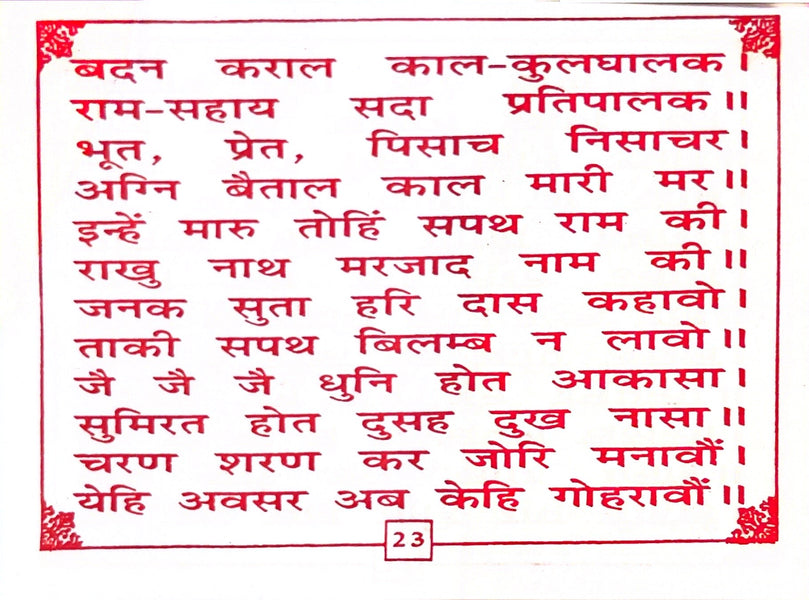 बदन कराल काल-कुलघालक।
राम-सहाय सदा प्रतिपालक॥
भूत, प्रेत, पिसाच निसाचर।
अग्नि बैताल काल मारी मर॥
इन्हें मारु तोहिं सपथ राम की।
राखु नाथ मरजाद नाम की॥
जनक सुता हरि दास कहावो।
ताकी सपथ बिलम्ब न लावो॥
जै जै जै धुनि होत आकासा।
सुमिरत होत दुसह दुख नासा॥
चरण शरण कर जोरि मनावौं।
येहि अवसर अब केहि गोहरावौं॥
23